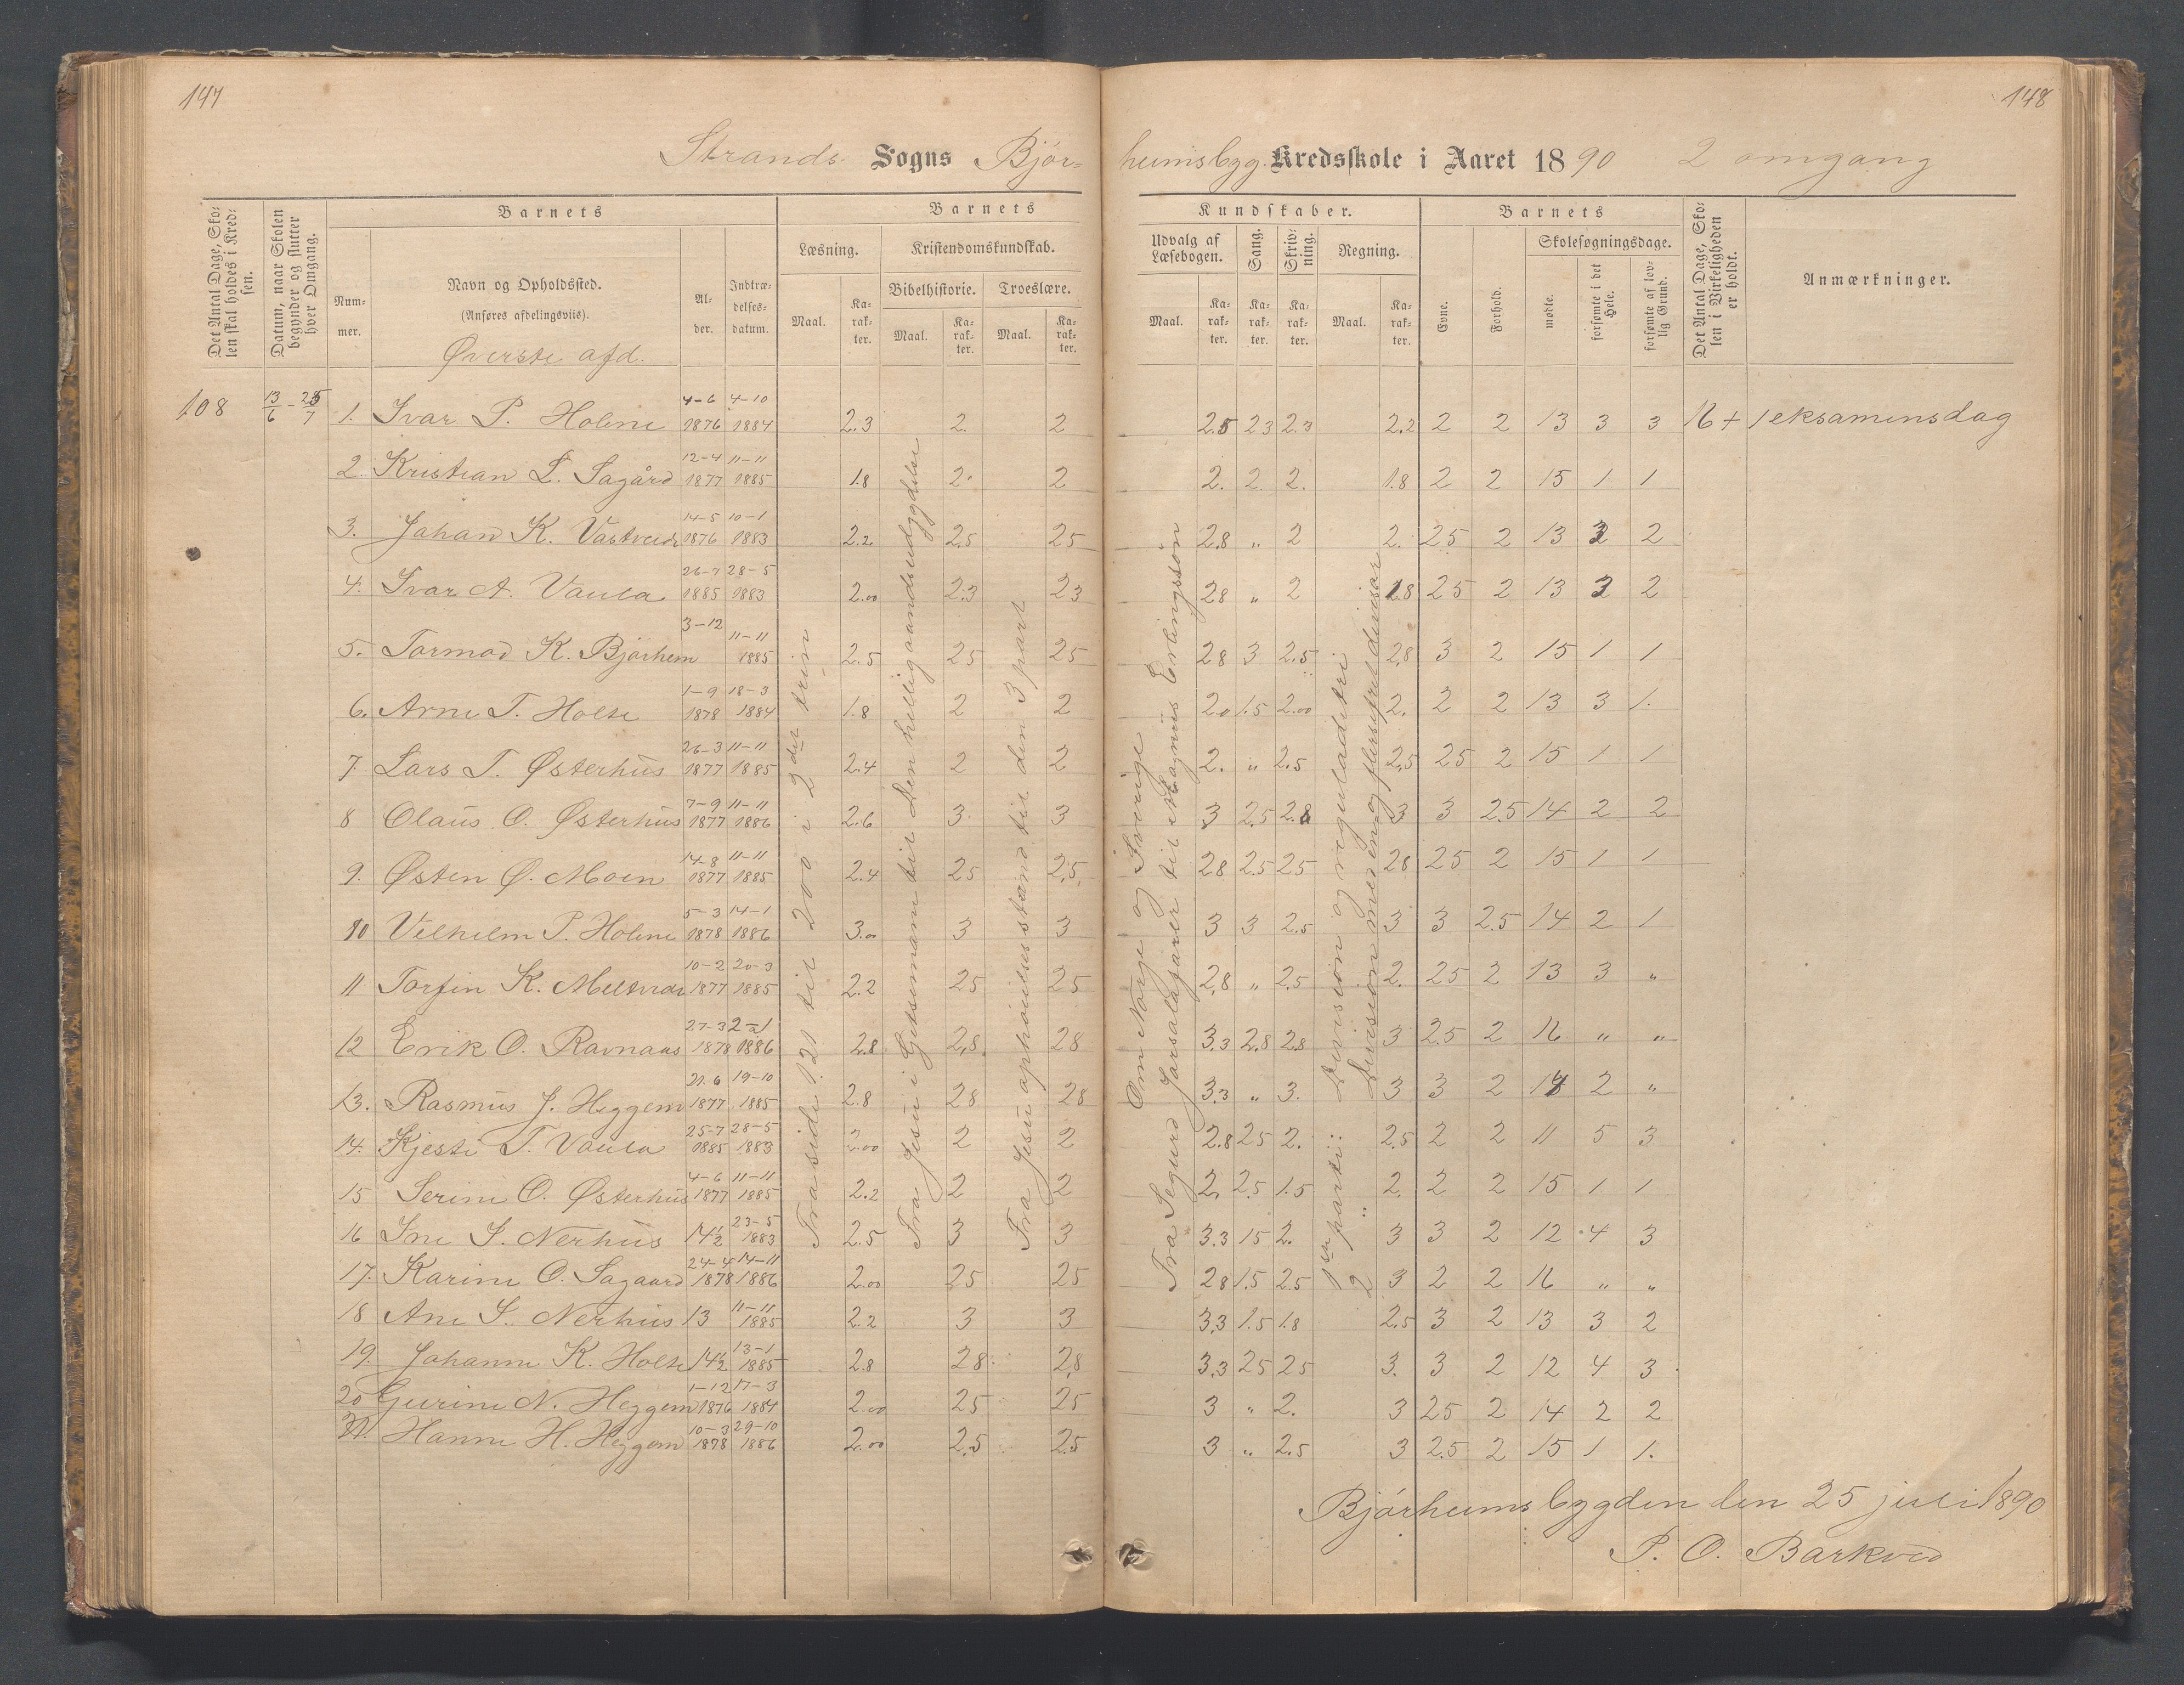 147
148
Strands Sogns Bjór- heimsbyg. Kredsskole i Aaret 1890 2 omgang
Det Antal Dage, Skolen skal holdes i Kredsen.
Datum, naar Skolen begynder og slutter hver Omgang.
Barnets
Nummer.
Navn og Opholdssted.
(Anføres afdelingsviis).
Øverste afd.
Alder.
Indtrædelsesdatum.
Barnets
Læsning.
Maal.
Karakter.
Kristendomskundskab.
Bibelhistorie.
Maal.
Karakter.
Troeslære.
Maal.
Karakter.
Kundskaber.
Udvalg af Læsebogen.
Maal.
Karakter.
Sang.
Karakter.
Skrivning.
Karakter.
Regning.
Maal.
Karakter.
Barnets
Evne.
Forhold.
Skolesøgningsdage.
mødte.
forsømte i det Hele.
forsømte af lovlig Grund.
Det Antal Dage, Skolen i Virkeligheden er holdt.
Anmærkninger.
108 13/6 - 25/7 1. Ivar P. Holene 4-6 1876 4-10 1884 2.3 2. 2 2.5 23 2.3 2.2 2 2 13 3 3 16 + 1 eksamensdag
2 Kristian L. Sagård 12-4 1877 11-11 1885 1.8 2. 2 2. 2. 2. 1.8 2 2 15 1 1
3. Johan K. Vastveidt 14-5 1876 10-1 1883 2.2 2.5 25 2.8 „ 2 2. 25 2 13 3 2
4. Ivar A. Vaula 26-7 1885 28-5 1883 2.00 2.3 23 28 „ 2 1.8 25 2 13 3 2
5. Tormod K. Bjørheim 3-12 11-11 1885 2.5 25 25 28 3 2.5 2.8 3 2 15 1 1
6. Arne T. Holte 1-9 1878 18-3 1884 1.8 2 2 2.0 1.5 2.00 2. 2 2 13 3 1.
7. Lars T. Østerhus 26-3 1877 11-11 1885 2.4 2 2 2. „ 2.5 2.5 25 2 15 1 1
8 Olaus O. Østerhus 7-9 1877 11-11 1886 2.6 3. 3 3 2.5 2.8 3 3 2.5 14 2 2
9. Østen Ø. Moen 14-8 1877 11-11 1885 2.4 25 2.5 28 2.5 25 28 25 2 15 1 1
10 Vilhelm P. Holene 5-3 1878 14-1 1886 3.00 3 3 3 3 2.5 3 3 2.5 14 2 1
11 Torfin K. Meltveit 10-2 1877 20-3 1885 2.2 25 25 2.8 „ 2.5 2. 25 2 13 3 „
12 Erik O. Ravnaas 27-3 1878 2-1 1886 2.8 2.8. 28 3.3 2.8 2.8 3 2.5 2 16 „ „
13. Rasmus J. Heggem 21.6 1877 19-10 1885 2.8 28 28 3.3 „ 3. 3 3 2 14 2 „
14. Kjesti T. Vaula 25-7 1885 28-5 1883 2.00 2 2 2.8 25 2. 2.5 2 2 11 5 3
15 Serine O. Østerhus 4-6 1877 11-11 1885 2.2 2 2 2. 2.5 1.5 2. 2 2 15 1 1
16 Ine S. Nerhus 14½ 23-5 1883 2.5 3 3 3.3 15 2. 3 3 2 12 4 3
17. Karine O. Sagaard 24-4 1878 14-11 1886 2.00 25 25 28 1.5 2.5 3 2 2 16 „ „
18 Ane S. Nerhus 13 11-11 1885 2.2 3 3 3.3 1.5 1.8 2.5 3 2 13 3 2
19. Johanne K. Holte 14½ 13-1 1885 2.8 28 2.8 3.3 25 25 3. 3 2 12 4 3
20 Gurine N. Heggem 1-12 1876 17-3 1884 2.00 25 25 3 „ 2. 3 25 2 14 2 2
21. Hanne H. Heggem 10-3 1878 29-10 1886 2.00 2.5 2.5 3 „ 2.5 3 2.5 2 15 1 1.
Fra side 121 til 200 i 2det trin
Fra Jesu i Getsemane til Den helligaandsudgydelse
Fra Jesu ophøielsesstand til den 3 part
Om Norge og Sverige
Fra Segurd Jorsalafarer til Magnus Erlingssøn
1ste parti: Devision og reguladetri
2 „ Devision med en og flersifret devisor
Bjórheimsbygden den 25 juli 1890
P. O. Barkved